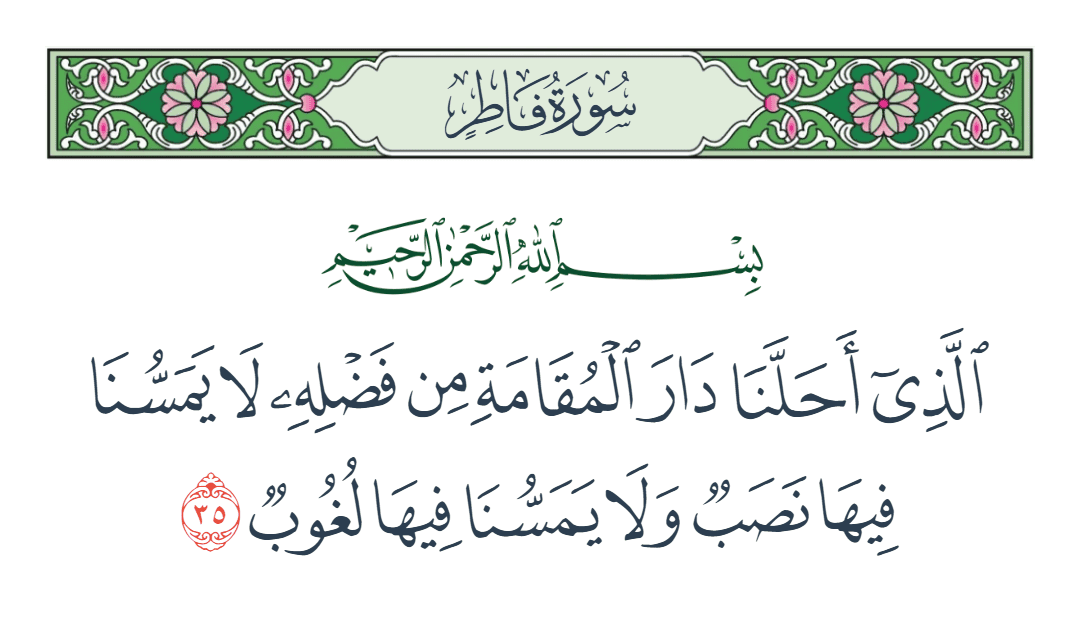 سُورَةُ فَاطِرٍ
بِسْمِ ٱللَّهِ ٱلرَّحْمَٰنِ ٱلرَّحِيمِ
ٱلَّذِىٓ أَحَلَّنَا دَارَ ٱلْمُقَامَةِ مِن فَضْلِهِۦ لَا يَمَسُّنَا
فِيهَا نَصَبٌ وَلَا يَمَسُّنَا فِيهَا لُغُوبٌ ٣٥